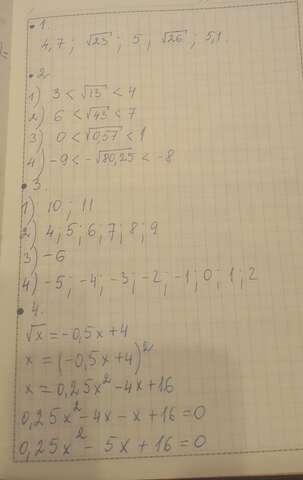 • 1.
4,7 ; √23 ; 5 , √26 ; 5,1.
• 2.
1) 3 < √15 < 4
2) 6 < √43 < 7
3) 0 < √0,57 < 1
4) -9 < -√80,25 < -8
• 3.
1) 10 ; 11
2) 4 ; 5 ; 6 ; 7 ; 8 ; 9
3) -6
4) -5 ; -4 ; -3 ; -2 ; -1 ; 0 ; 1 ; 2
• 4.
√x = -0,5x + 4
x = (-0,5x + 4)²
x = 0,25x² - 4x + 16
0,25x² - 4x - x + 16 = 0
0,25x² - 5x + 16 = 0